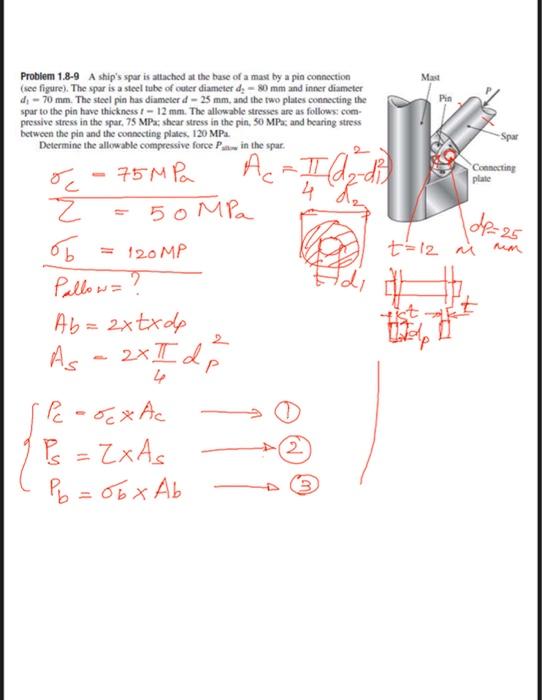 Problem 1.8-9 A ship's spar is attached at the base of a mast by a pin connection
(see figure). The spar is a steel tube of outer diameter d₂ = 80 mm and inner diameter
d₁ = 70 mm. The steel pin has diameter d = 25 mm, and the two plates connecting the
spar to the pin have thickness t = 12 mm. The allowable stresses are as follows: com-
pressive stress in the spar, 75 MPa; shear stress in the pin, 50 MPa; and bearing stress
between the pin and the connecting plates, 120 MPa.
Determine the allowable compressive force Pallow in the spar.
Mast
Pin
P
Spar
Connecting
plate
σc = 75MPa
Ac = π/4 (d₂²-d₁²)
τ = 50 MPa
σb = 120MP
Pallow = ?
Ab = 2xtxdp
As = 2x π/4 dp²
d₂
d₁
t=12 M
dp=25
mm
t
t
dp
Pc = σc x Ac → ①
Ps = τ x As → ②
Pb = σb x Ab → ③